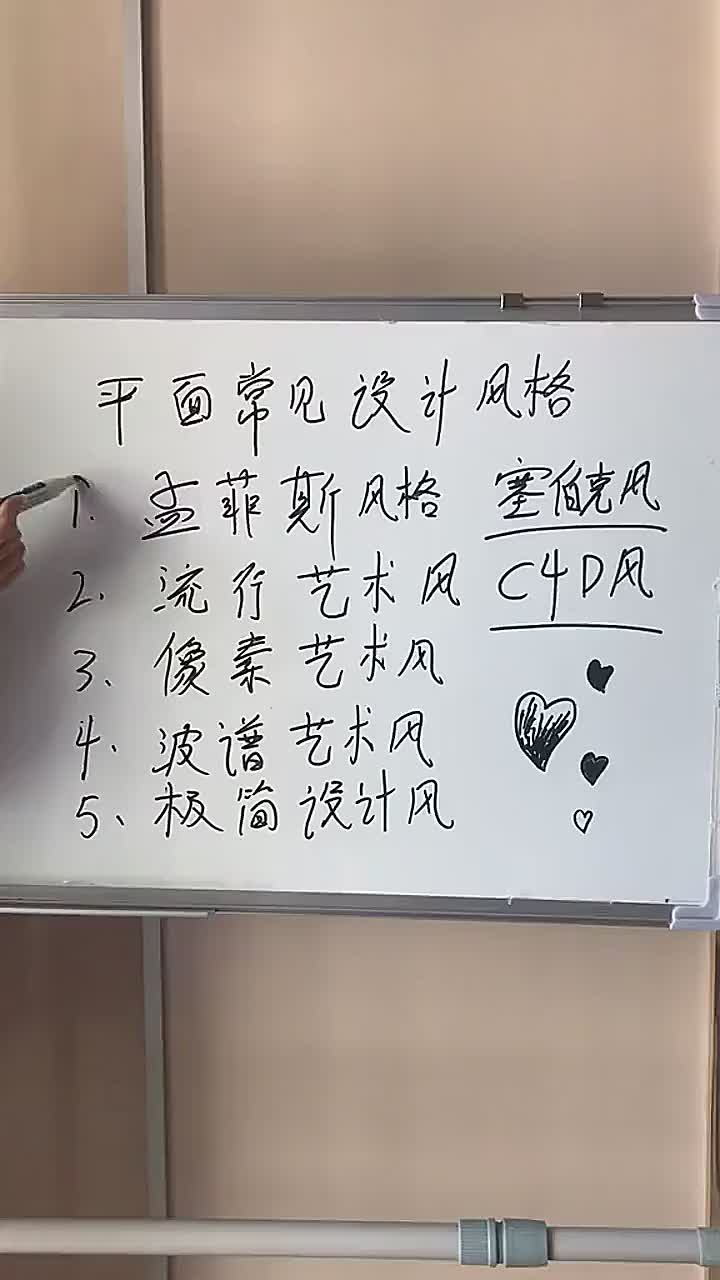 平面常见设计风格
1. 孟菲斯风格
塞伯克风
2. 流行艺术风
C4D风
3、像素艺术风
4、波谱艺术风
5、极简设计风